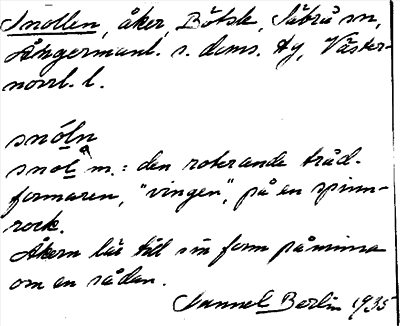 Snollen, åker, Bölsk, Säbrå sn,
Ångermanl. s. doms. hg, Väster-
norrl. l.
snóln
snol m.: den roterande träd-
formaren, "vingen", på en spinn-
rock.
Åkern lär till sin form påminna
om en sådan.
Sammel Berlin 1935